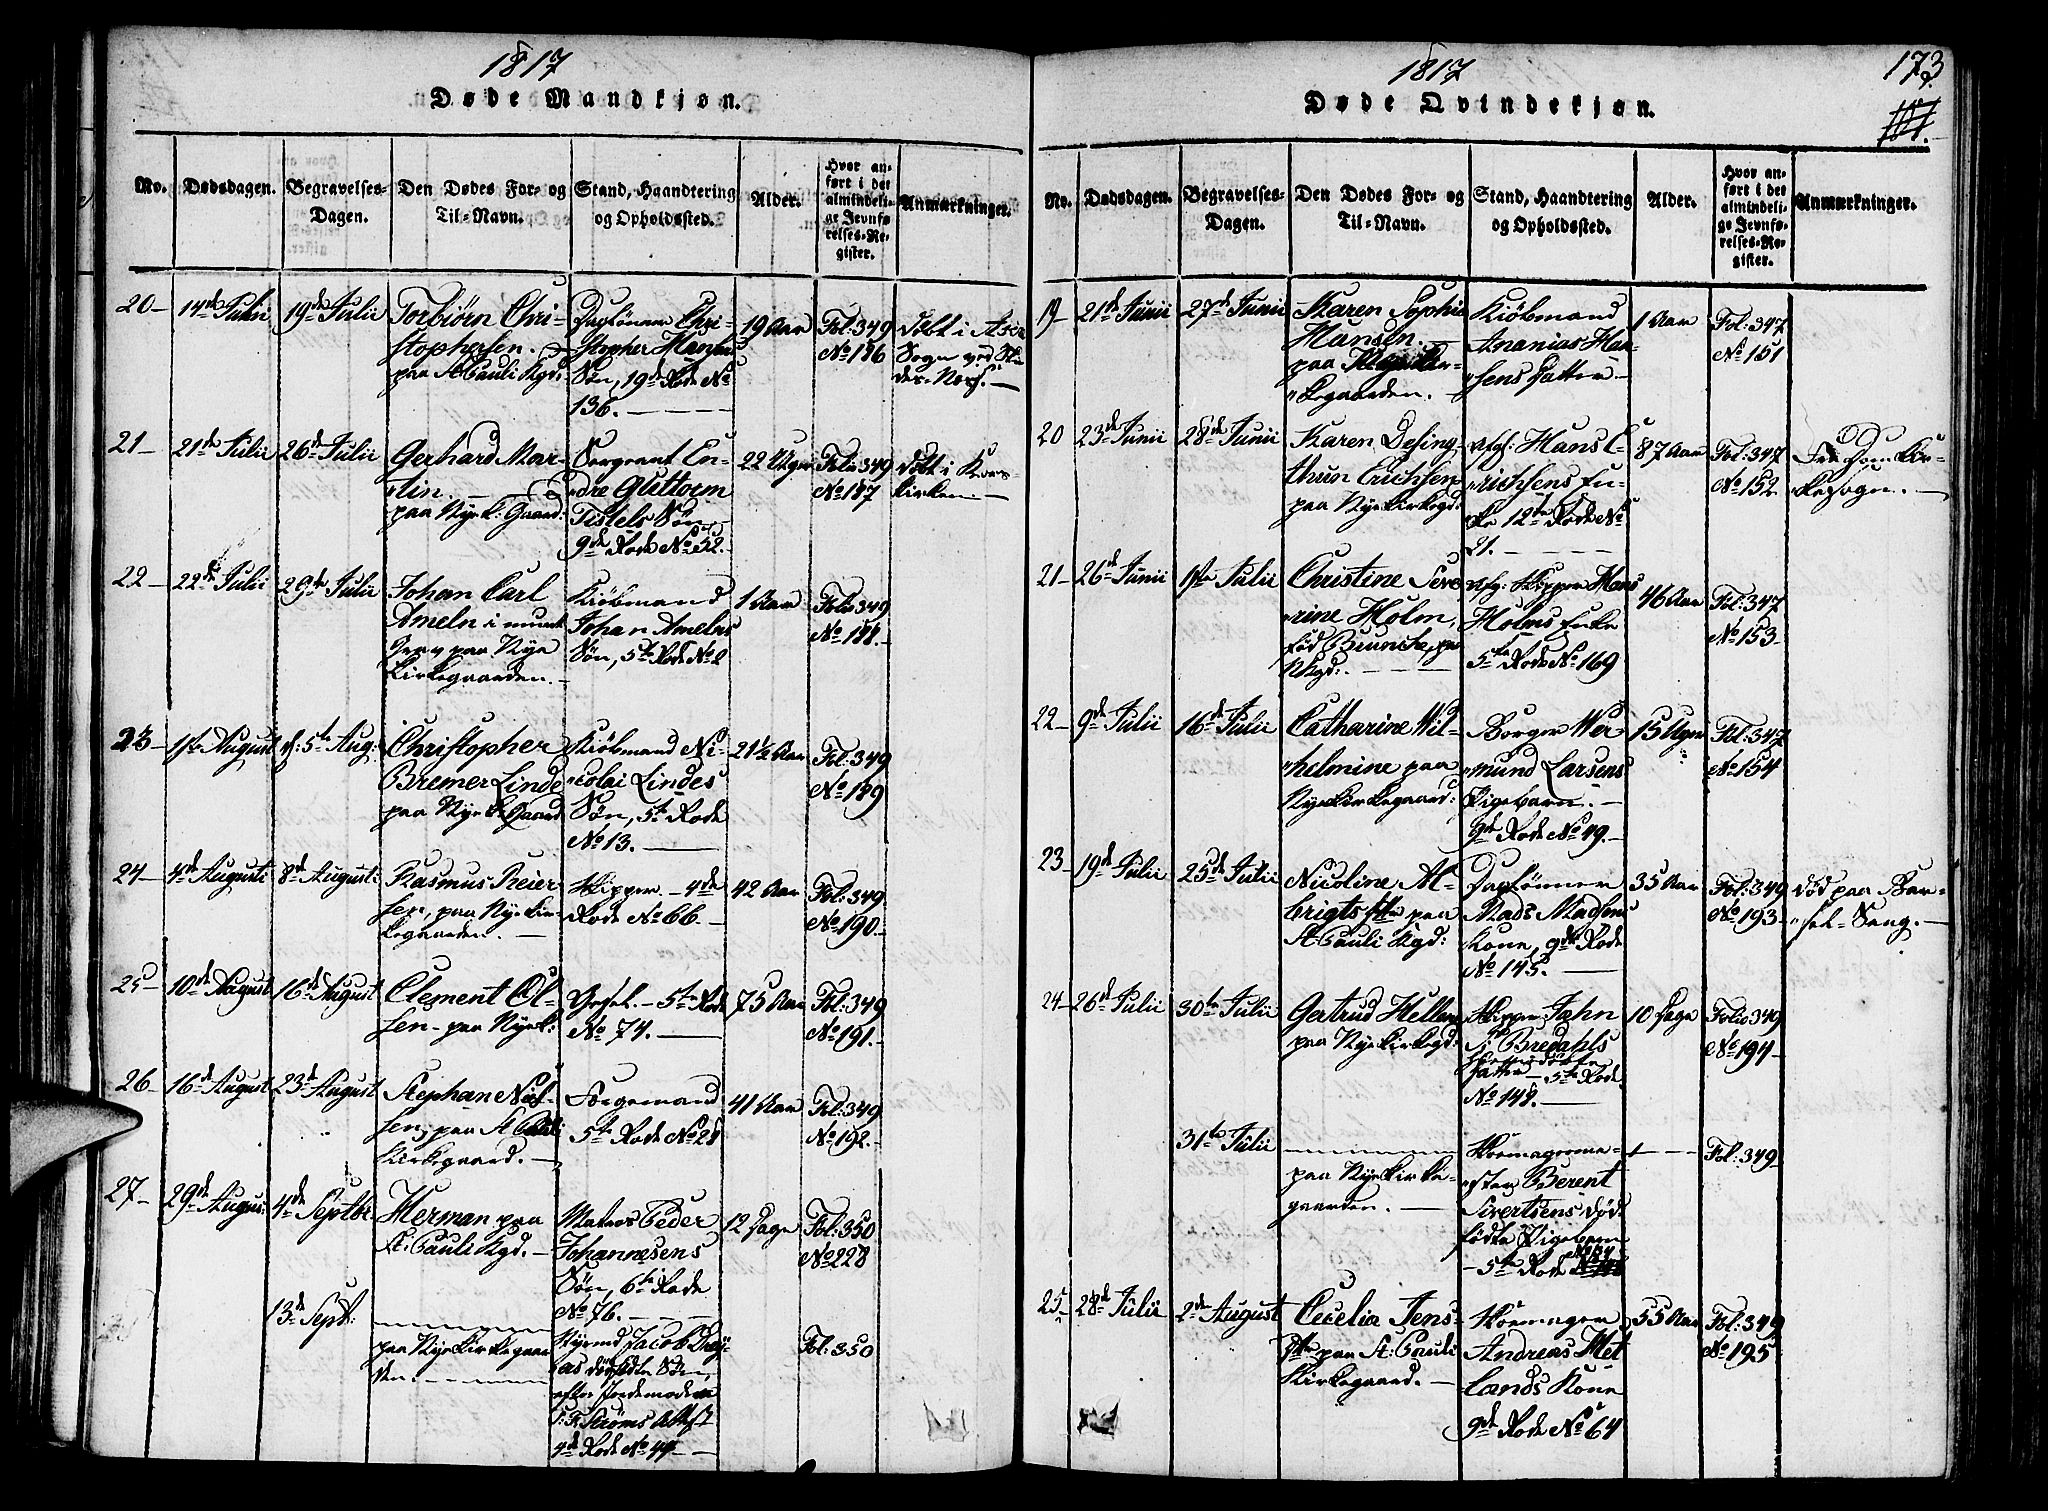 1817
Døde Mandkjøn.
No.
Dødsdagen.
Begravelses-
Dagen.
Den Dødes For- og
Til-Navn.
Stand, Haandtering
og Opholdssted.
Alder.
Hvor an-
ført i det
almindeli-
ge Jevnfø-
relses-Re-
gister.
Anmærkninger.
20-
14de Julii
19de Julii
Torbiørn Chri-
stophersen.
paa St Pauli Kgd:
Daglønner Chri-
stopher Hansens
Søn, 19de Rode No
136.
19 Aar
Fol: 349
No 186
Sogn ved
21-
21de Julii
26de Julii
Gerhard Mar-
tin.
paa Nye K: Gaard:
Sergeant En-
dre Guttorm
Tistels Søn
9de Rode No 52.
22 Uger
Folio 349
No 187
døbt i Kors-
kirken.
22-
22de Julii
29de Julii
Johan Carl
Ameln i muret
Grav paa Nye
Kirkegaarden.
Kiøbmand
Johan Amelns
Søn, 5te Rode No 2
1 Aar
Folio 349
No 188.
23-
1ste August
5te Aug:
Christopher
Bremer Linde
paa Nye K: Gaard
Kiøbmand Ni-
colai Lindes
Søn, 5te Rode
No 13.
21½ Aar
Fol: 349
No 189
24-
4de Augusti
8de August:
Rasmus Reier-
sen, paa Nye Kir-
kegaarden.
Skipper. - 4de
Rode No 66.
42 Aar
Fol: 349.
No 190.
25-
10de August
16de August
Clement Ol-
sen- paa Nye K:
5te Rode
No 74.
75 Aar
Fol: 349
No 191.
26-
16de August
23de August
Stephan Niel-
sen, paa St Pauli
Kirkegaard.
Borgemand
5te Rode No 28
41 Aar
Fol: 349
No 192.
27-
29de August:
4de Septbr
Herman paa
St: Pauli Kgd.
Matros Peder
Johannesens
Søn, 6te Rode
No 76.
12 Dage
Fol: 350
No 228
13de Sept:
paa Nye Kirkegaar-
den.
Jacob
dødfødte Søn,
efter Jordemoder
Strøms Attest
4de Rode No 44
Fol: 350
1817
173
Døde Qvindekjøn.
No.
Dødsdagen.
Begravelses-
Dagen.
Den Dødes For- og
Til-Navn.
Stand, Haandtering
og Opholdssted.
Alder.
Hvor an-
ført i det
almindeli-
ge Jevnfø-
relses-Re-
gister.
Anmærkninger.
19-
21de Junii
27de Junii
Karen Sophie
Hansen.
paa Nye Kir-
kegaarden.
Kiøbmand
Ananias Han-
sens Datter
1 Aar
Fol: 347
No 151
20
23de Junii
28de Junii
Karen Desing-
thun Erichsen
paa Nye Kirkegd:
afg: Hans E-
richsens En-
ke 12te Rode No
21.
87 Aar
Fol: 347
No 152
Fra Dom Kir-
kesogn.
21-
26de Junii
1ste Julii
Christine Seve-
rine Holm,
fød Beunche, paa
NKgd:
afg: Skipper Hans
Holms Enke
5te Rode No 169
46 Aar
Fol: 347
No 153
22-
9de Julii
16de Julii
Catharine Wil-
helmine paa
Nye Kirkegaard:
Borger Wer-
mund Larsens
Pigebarn.
9de Rode No 49.
15 Uger
Fol: 347
No 154
23
19de Julii
25de Julii
Nicoline Al-
brigts dtr paa
St Pauli Kgd:
Daglønner
Mads Madsens
Kone, 9de Rode
No 145.
35 Aar
Fol: 349
No 193
død paa Bar-
sel-Seng.
24-
26de Julii
30te Julii
Gertrud Hellen
paa Nye Kirkegd:
Skipper John
Bredahls
Datter 5te Rode
No 148.
10 Dage
Folio 349
No 194
31te Julii
paa Nye Kirke-
gaarden.
Skoemagerme-
ster Berent
Sivertsens død-
fødte Pigebarn
- 5te Rode
Fol: 349
25-
28de Julii
2de August
Cecelia Jens-
dtr paa St: Pauli
Kirkegaard.
Skoemager
Andreas Met-
lands Kone
9de Rode No 64
55 Aar
Fol: 349
No 195